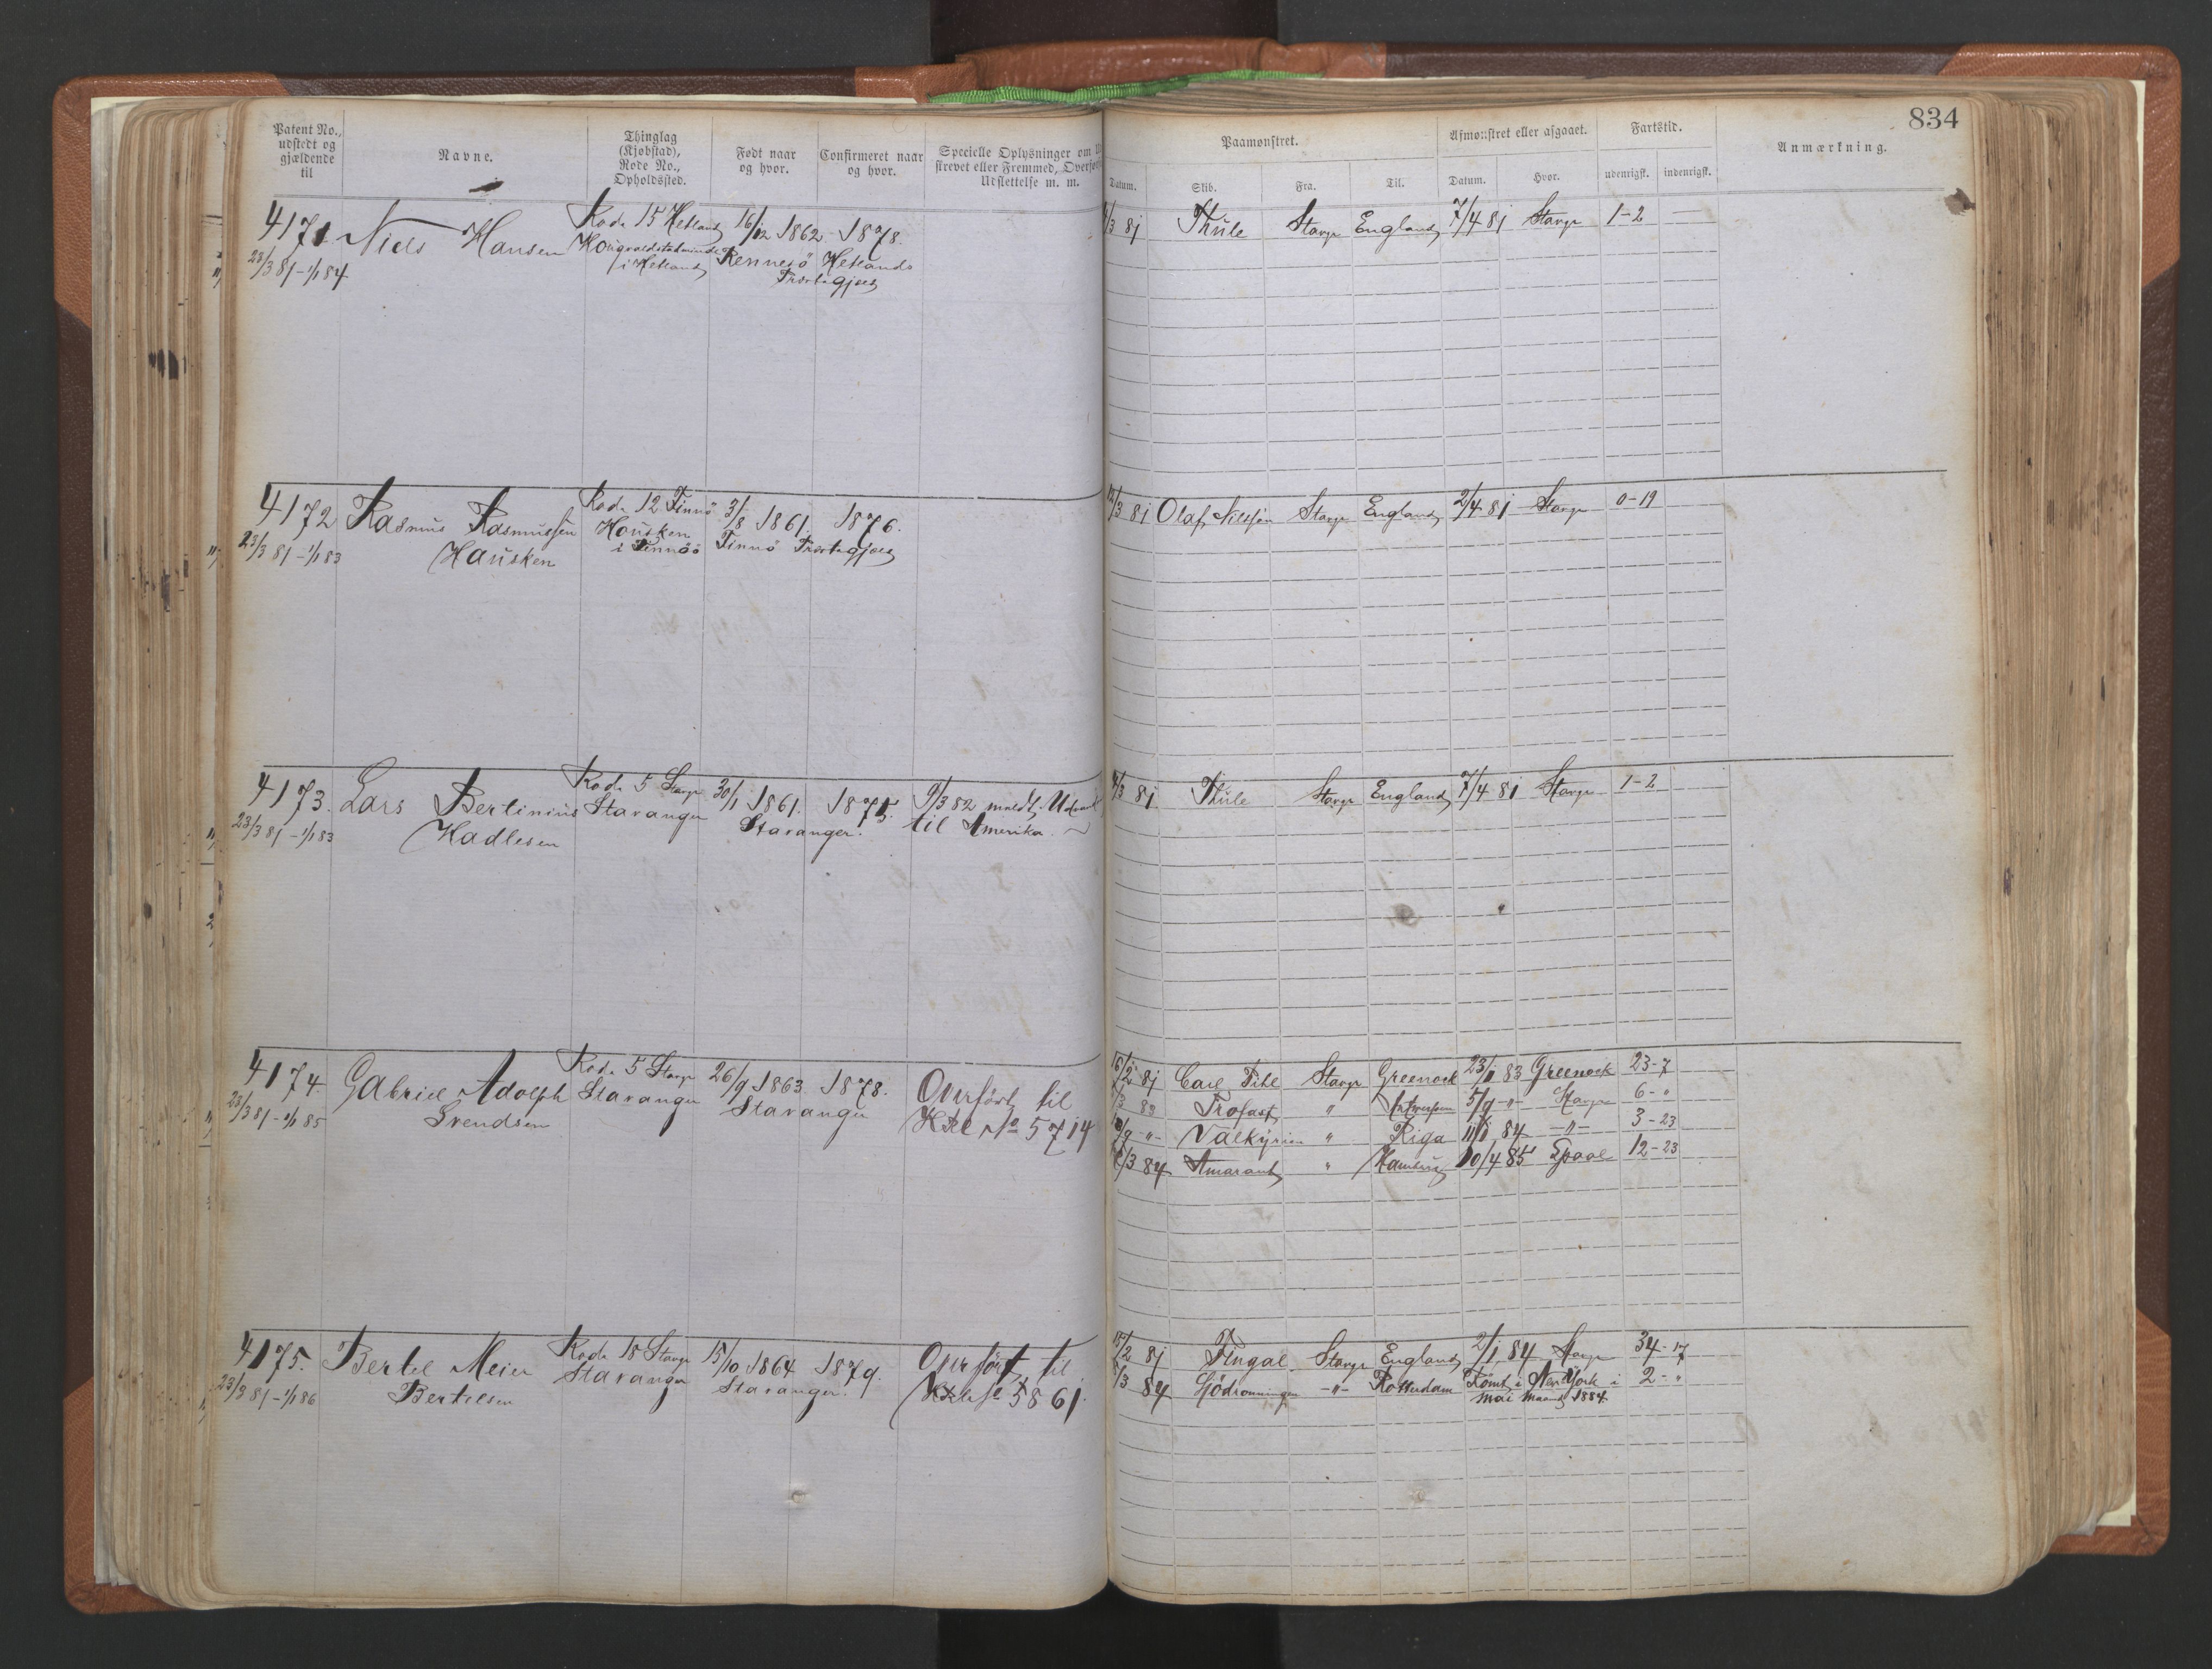 834
Patent No., udstedt og gjældende til
Navne.
Thinglag (Kjøbstad), Rode No., Opholdssted.
Født naar og hvor.
Confirmeret naar og hvor.
Specielle Oplysninger om
strevet eller Fremmed,
Udslettelse m. m.
Paamønstret.
Afmønstret eller afgaaet.
Fartstid.
Anmærkning.
Datum.
Skib.
Fra.
Til.
Datum.
Hvor.
udenrigsk.
indenrigsk.
4171 Niels Hansen Rode 15 Hetland 16/12 1862 1878.
23/3 81 - 1/1 84 i Hetland Rennesö Hetlands
Præstegjeld
/3 81 Thule Stavgr England 7/4 81 Stavgr 1-2
4172 Rasmus Rasmussen Rode 12 Finnö 3/8 1861. 1876.
23/3 81 - 1/1 83 Hausken Housken i Finnöö Finnö Præstegjeld
/3 81 Olaf Nilssøn Stavgr England 2/4 81 Stavgr 0-19
4173. Lars Bertinius Rode 5 Stavgr 30/1 1861. 1875. 9/3 82 meldt
23/3 81 - 1/1 83 Hadlesen Stavanger Stavanger. til Amerika.
/3 81 Thule Stavgr England 7/4 81 Stavgr 1-2
4174. Gabriel Adolph Rode 5 Stavgr 26/9 1863. 1878. Overført til
23/3 81 - 1/1 85 Svendsen Stavanger Stavanger No 5714
/2 81 Carl Pihl Stavgr Greenock 23/1 83 Greenock 23-7
/3 83 Trofast " Antwerpen 5/9 -"- Stavgr 6-"
/9 -"- Valkyrien " Riga 11/1 84 -"- 3-23
/3 84 Amarant " Hamburg 10/4 85 12-23
4175. Bertel Meier Rode 18 Stavgr 15/10 1864 1879. Overført til
23/3 81 - 1/1 86 Bertelsen Stavanger Stavanger. 5861.
/2 81 Fingal Stavgr England 2/1 84 Stavgr 34-17
/3 84 Sjödronningen -"- Rotterdam Römt i New York i 2-"
mai maaned 1884.